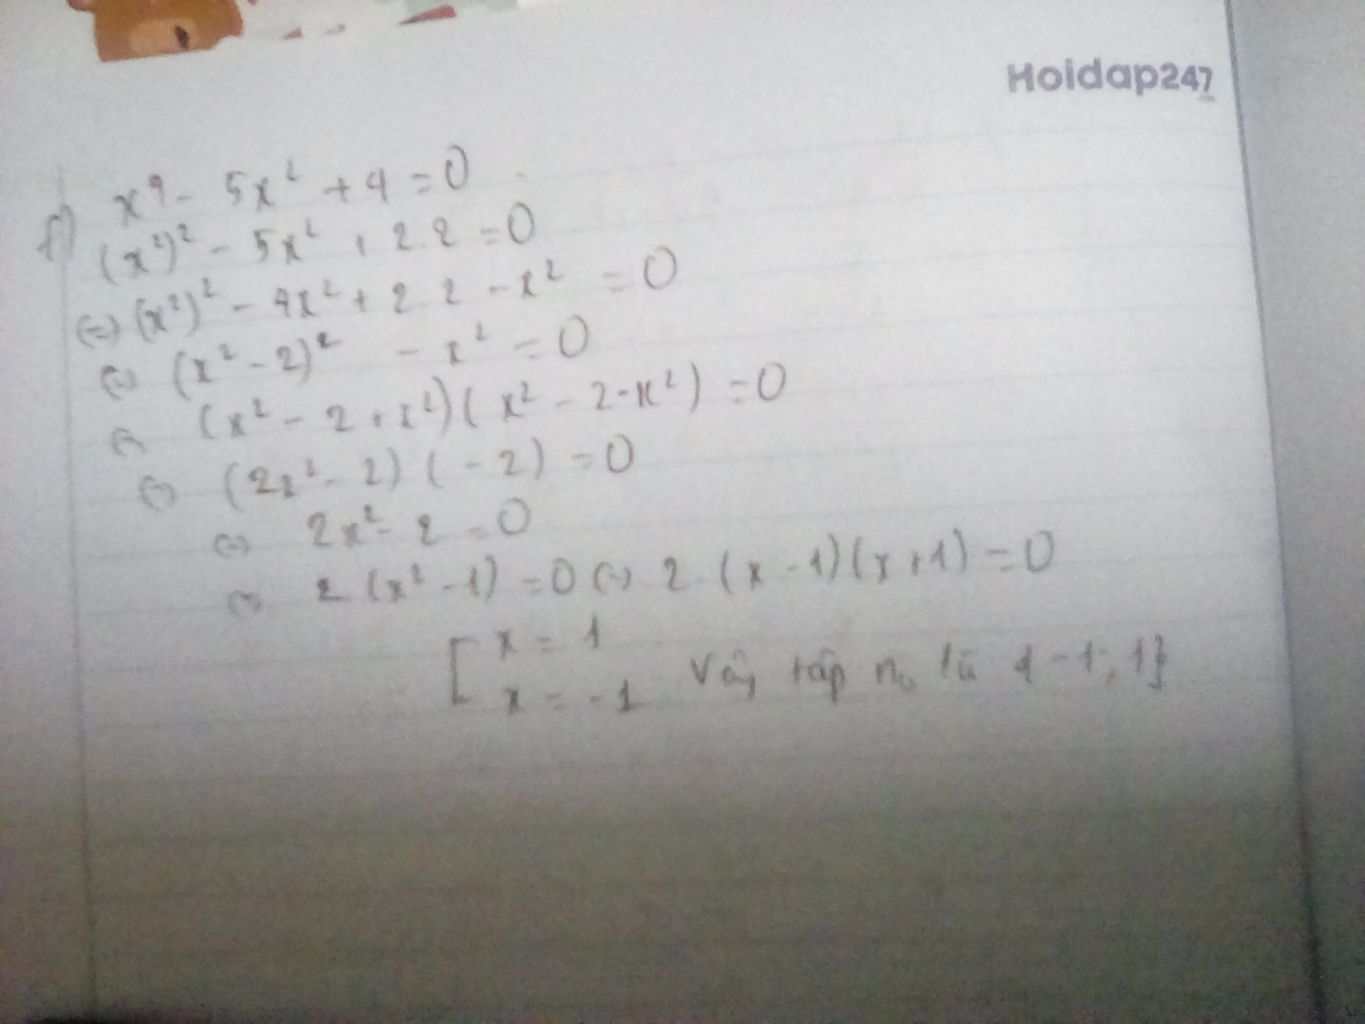 Hoidap247
f) x⁴ - 5x² + 4 = 0
(x²)² - 5x² + 2.2 = 0
(=) (x²)² - 4x² + 2 2 - x² = 0
(=) (x² - 2)² - x² = 0
(=) (x² - 2 + x²)(x² - 2 - x²) = 0
(=) (2x² - 2) (-2) = 0
(=) 2x² - 2 = 0
(=) 2 (x² - 1) = 0 (=) 2 . (x - 1)(x + 1) = 0
[ x = 1
x = -1 Vậy tập n₀ là {-1; 1}